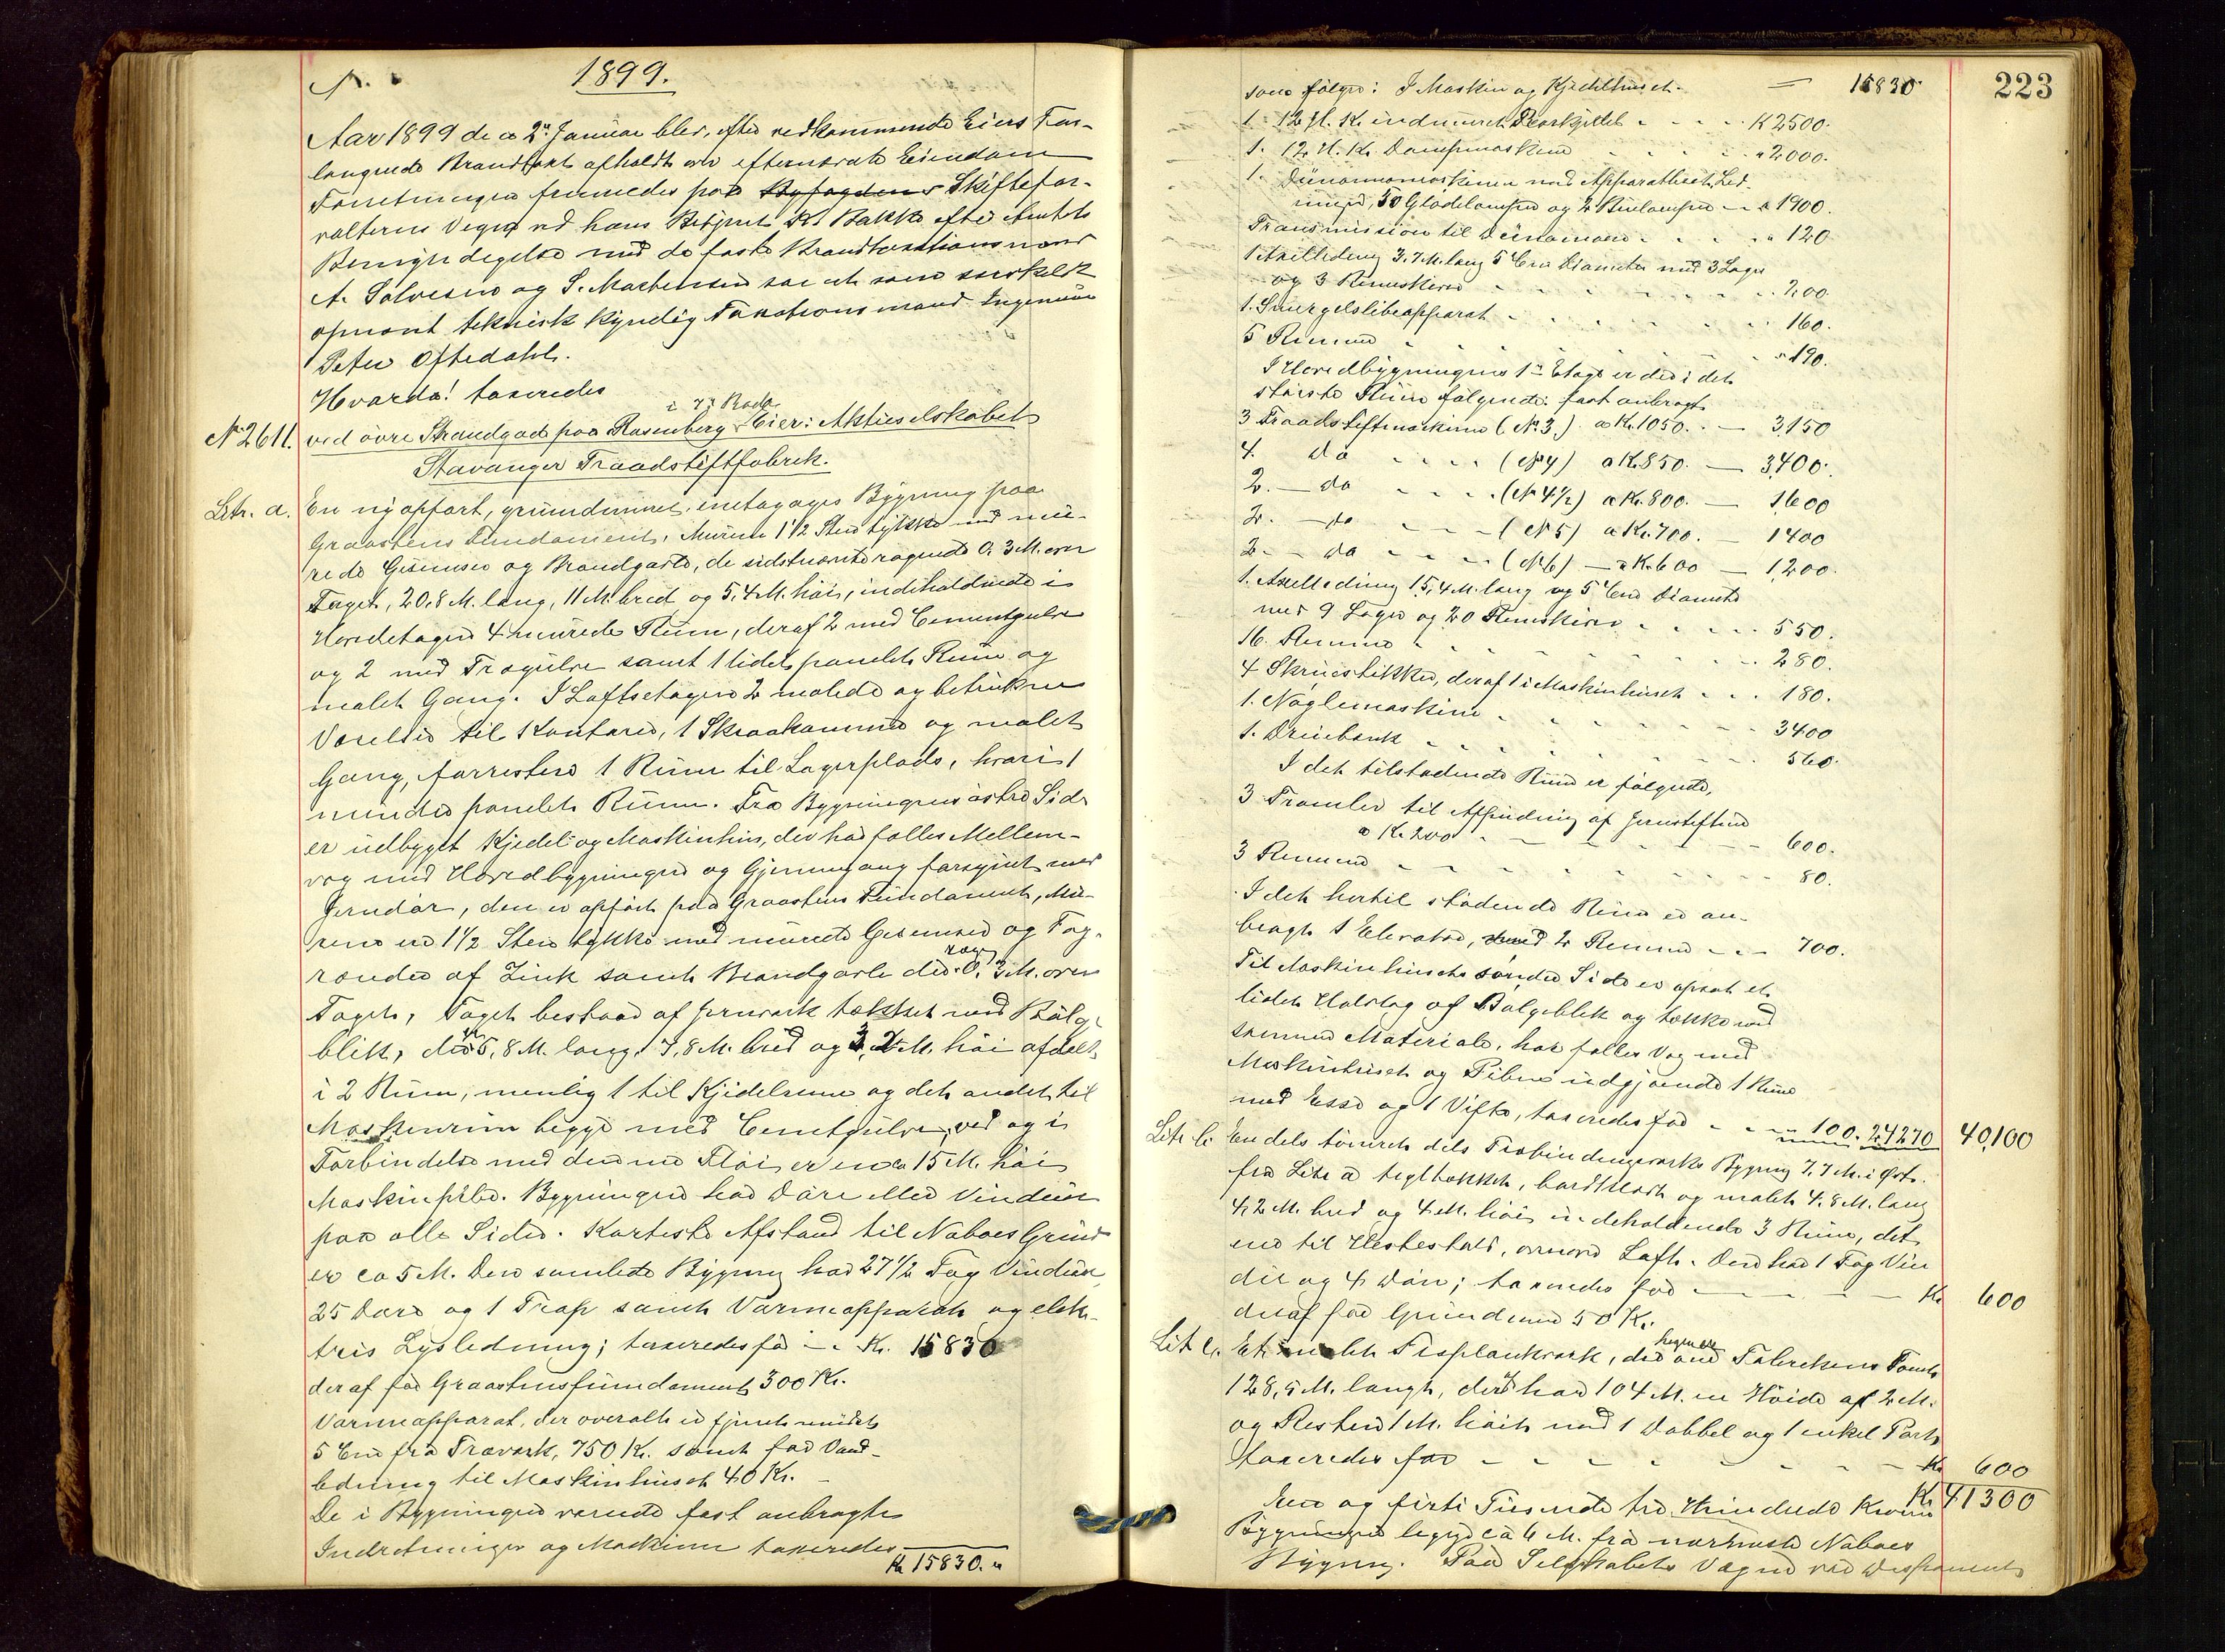 1899.
Aar 1899 den 2den Januar blev, efter vedkommende Eiers For-
langende Brandtaxt afholdt over efternævnte Eiendom
Forretningen fremmedes paa Byfogdens Skiftefor-
valterens Vegne ved hans Betjent K. Bakke efter Amtets
Bemyndigelse med de faste Brandtaxtionsmænd
A. Salvesen og S. Martensen samt som særskilt
opnævnt teknisk kyndig Taxationsmand Ingeniør
Peter Oftedahl.
Hvorda! taxeredes
i 7de Rode
No 2611. ved övre Strandgade paa Rosenberg Eier: Aktieselskabet
Stavanger Traadstiftfabrik.
Litr. a. En ny opfört, grundmuret, enetages Bygning paa
Graastens Fundament, Murene 1 1/2 Sten tykke med mu-
rede Gesimser og Brandgavle, de sidstnævnte ragende 0,3 M. over
Taget, 20,8 M. lang, 11 M. bred og 5,4 M. höi, indeholdende i
Hovedetagen 4 murede Rum, deraf 2 med Cementgulve
og 2 med Trægulve samt 1 lidet panelet Rum og
malet Gang. I Loftsetagen 2 malede og betrukne
Værelser til Kontorer, 1 Skraakammer og malet
Gang, forresten 1 Rum til Lagerplads, hvori 1
mindre panelet Rum. Fra Bygningens östre Side
er udbygget Kjedel og Maskinhus, der har fælles Mellem-
væg med Hovedbygningen og Gjennemgang forsynet med
Jerndör, den er opfört paa Graastens Fundament, Mu-
rene er 1 1/2 Sten tykke med murede Gesimser og Tag-
render af Zink samt Brandgavle der rager 0,3 M. over
Taget, Taget bestaar af Jernværk tækket med Bölge
blik, der er 5,8 M. lang, 7,8 M. bred og 3,2 M. höi afdelt
i 2 Rum, nemlig 1 til Kjedelrum og det andet til
Maskinrum begge med Cemetgulve, ved og i
Forbindelse med denne Flöi er en ca 15 M. höi
Maskinpibe. Bygningen har Döre eller Vinduer
paa alle Sider. Korteste Afstand til Naboes Grund
er ca 5 M. Den samlede Bygning har 27 1/2 Fag Vinduer,
25 Döre og 1 Trap samt Varmeapparat og elek-
trisk Lysledning; taxeredes for - - Kr. 15830
deraf for Graastensfundament 300 Kr.
Varmeapparat, der overalt er fjernet mindst
5 Cm fra Træværk, 750 Kr. samt for Vand-
ledning til Maskinhuset 40 Kr. -
De i Bygningen værende fast anbragte
Indretninger og Maskiner taxeredes
Kr 15830. "
223
som fölger: I Maskin og Kjedelhuset. = 15830
1. 12 H. K. indmuret Dampkjedel - - - K 2500.
1. 12 H. K. Dampmaskine - - - " 2000.
1. Dünamomaskine med Apparattavle, Led-
ninger, 50 Glödelamper og 2 Buelamper - - " 1900.
Transmission til Dünamoen - - - " 120
1 Axelledning 3,7 M. lang 5 Cm Diameter med 3 Lager
og 3 Remskiver - - - 200.
1. Smergelslibeapparat - - - 160.
5 Remmer - - - " 190.
I Hovedbygningens 1ste Etage er der i det
störste Rum fölgende fast anbragt
3 Traadstiftmaskiner (No 3.) a Kr. 1050. - 3150
4 do - - (No 4) a Kr. 850. - 3,400.
2. - do - - (No 4 1/2) a Kr. 800. - 1,600
2. - do - - (No 5) a Kr. 700. - 1400
2 - do - - (No 6) - a Kr. 600 - 1,200.
1. Axelledning 15,4 M. lang og 5 Cm Diameter
med 9 Lager og 20 Remskiver - - - 550.
16. Remme - - - 280.
4 Skruestikker, deraf 1 i Maskinhuset - - - 180.
1. Nöglemaskine - - - 3400
1. Dreiebænk - - - 560.
I det tilstödende Rum er fölgende,
3 Tromler til Afpudsning af Jernstiften
a Kr. 200 - - - 600.
3 Remmer - - - 80.
I det hertil stödende Rum er an-
bragt 1 Elevator, med 2 Remmer - - - 700.
Til Maskinhusets söndre Side er opsat et
lidet Halvtag af Bölgeblik og tække med
samme Materiale, har fælles Væg med
Maskinhuset og Piben udgjörende 1 Rum
med Esse og 1 Vifte, taxeredes for - - - 100. 24270 40,100
Litr b. En dels tömret dels Trebindingsværks Bygning 7,7 M. i Öst
fra Litr a tegltækket, bordklædt og malet 4,8 M. lang
4,2 M. bred og 4 M. höi, indeholdende 3 Rum, det
ene til Hestestald, ovenover Loft. Den har 1 Fag Vin
due og 4 Döre; taxeredes for - - - Kr 600
deraf for Grundmur 50 Kr.
Litr c. Et malet Træplankværk, der hegner om Fabrikens Tomt
128,5 M. langt, det har 104 M. en Höide af 2 M.
og Resten 1 M. höit med 1 Dobbel og 1 enkel Port
taxeredes for - - - Kr 600
Kr 41300
Een og firti Tusende tre Hundrede Kroner
Bygningen ligger ca 6 M. fra nærmeste Naboes
Bygning. Paa Selskabets Vegne var Disponent